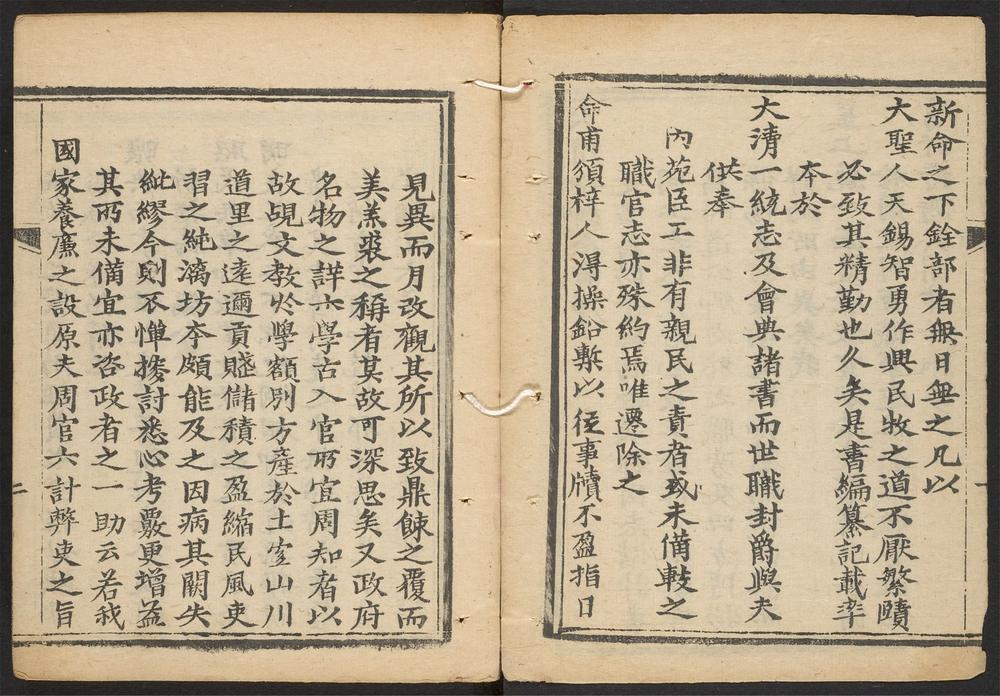 新命之下銓部者無日無之凡以
大聖人天錫智勇作興民牧之道不厭繁賾
必致其精勤也久矣是書編纂記載率
本於
大清一統志及會典諸書而世職封爵與夫
供奉
內苑臣工非有親民之責者或未備載之
職官志亦殊約焉唯遷除之
命甫頒梓人淂操鉛槧以從事牘不盈指日
見異而月改觀其所以致鼎餗之覆而
美羔裘之稱者莫故可深思矣又政府
名物之詳亦學古入官所宜周知者以
故覘文教於學額別方產於土宜山川
道里之遠邇貢賦儲積之盈縮民風吏
習之純漓坊本頗能及之因病其闕失
紕繆今則不憚搜討悉心考覈更增益
其所未備宜亦咨政者之一助云若我
國家養廉之設原夫周官六計弊吏之旨
二